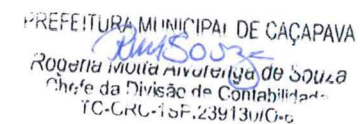 PREFEITURA MUNICIPAL DE CAÇAPAVA
Rogéria Moura Alvarenga de Souza
Chefe da Divisão de Contabilidade
TC-CRC-1SP.239130/O-6